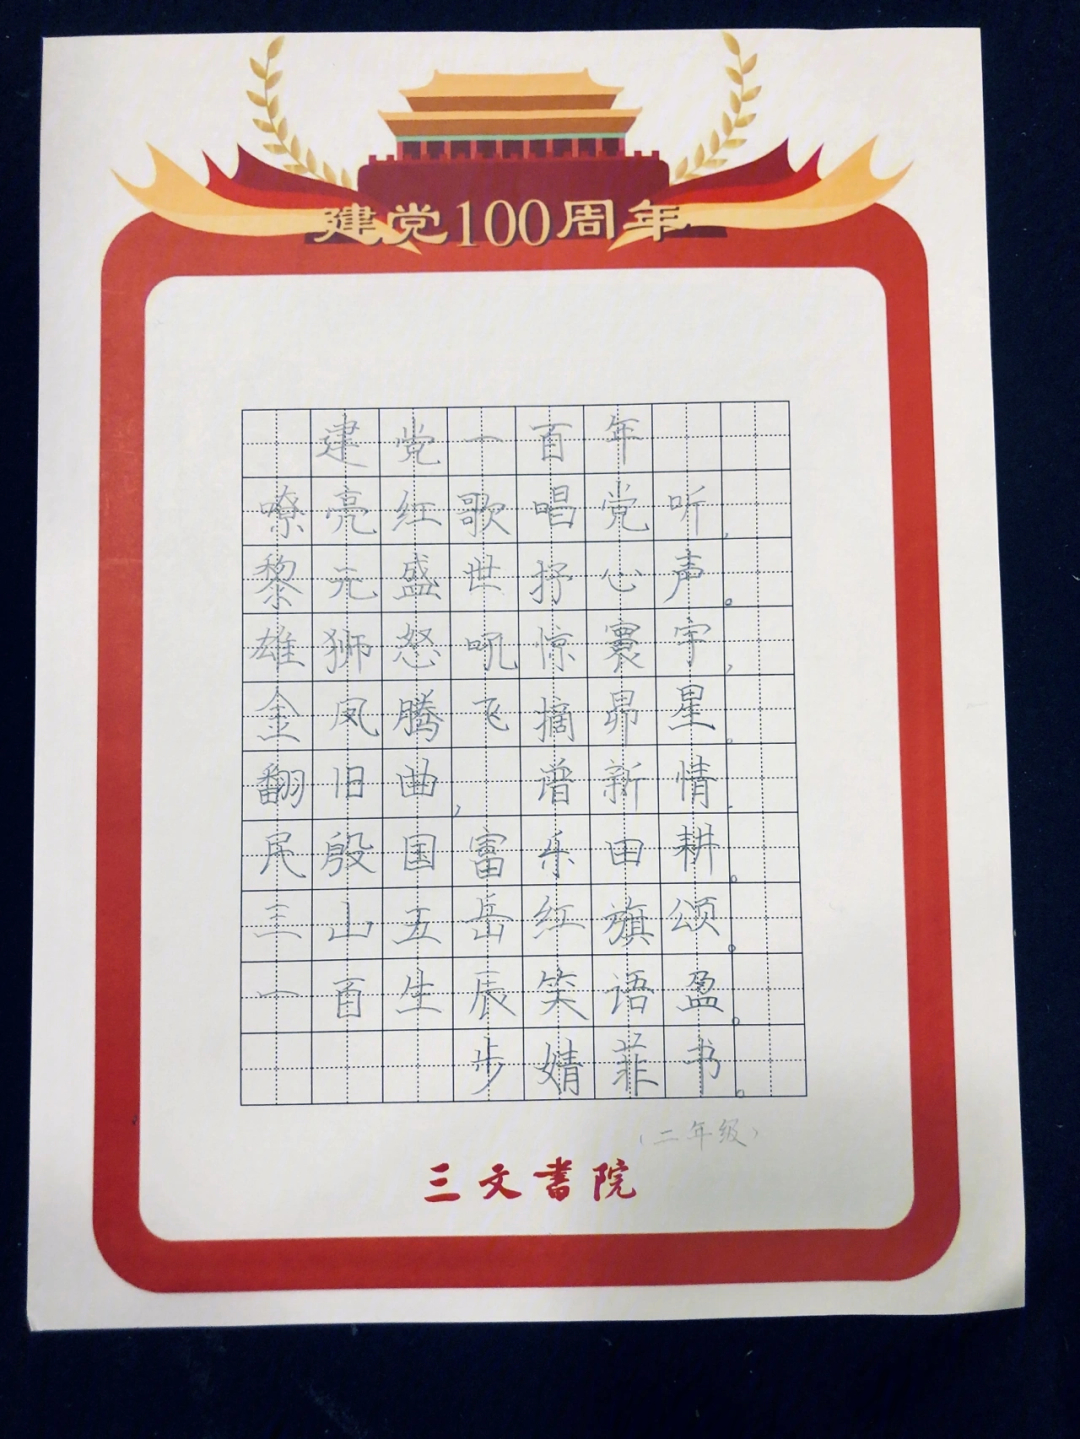 建党100周年
建党一百年
嘹亮红歌唱党听，
黎元盛世抒心声。
雄狮怒吼惊寰宇，
金凤腾飞摘昴星。
翻旧曲，谱新情，
民殷国富乐田耕。
三山五岳红旗颂。
一百生辰笑语盈。
步婧菲书。
（二年级）
三文書院